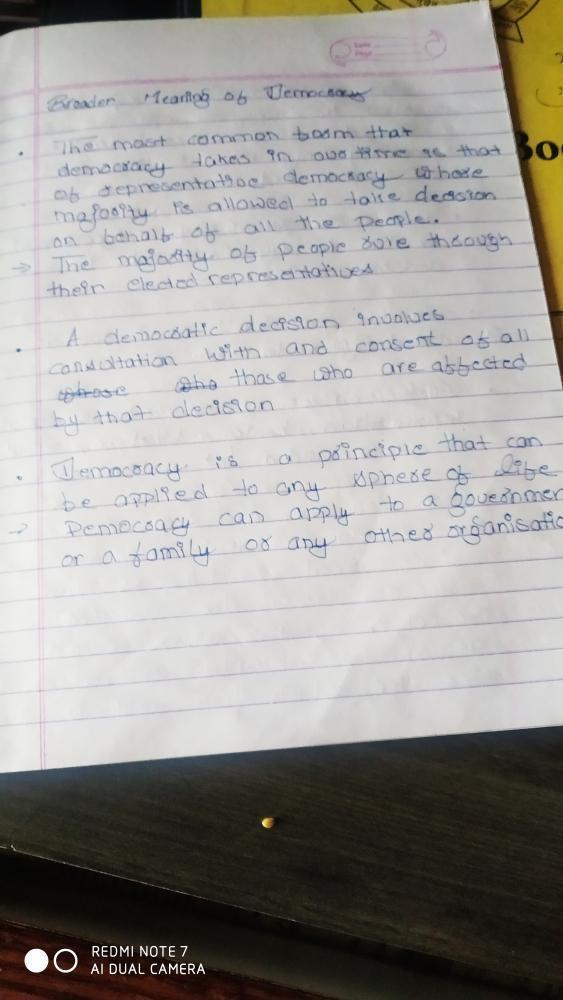 Date
Page
Broader Meaning of Democracy
. The most common form that
democracy takes in our time is that
of representative democracy whose
majority is allowed to take decision
on behalf of all the people.
→ The majority of people rule through
their elected representatives
. A democratic decision involves
consultation with and consent of all
those who are affected
by that decision
. Democracy is a principle that can
be applied to any sphere of life
→ Democracy can apply to a governmen
or a family or any other organisatio
Boo
REDMI NOTE 7
AI DUAL CAMERA